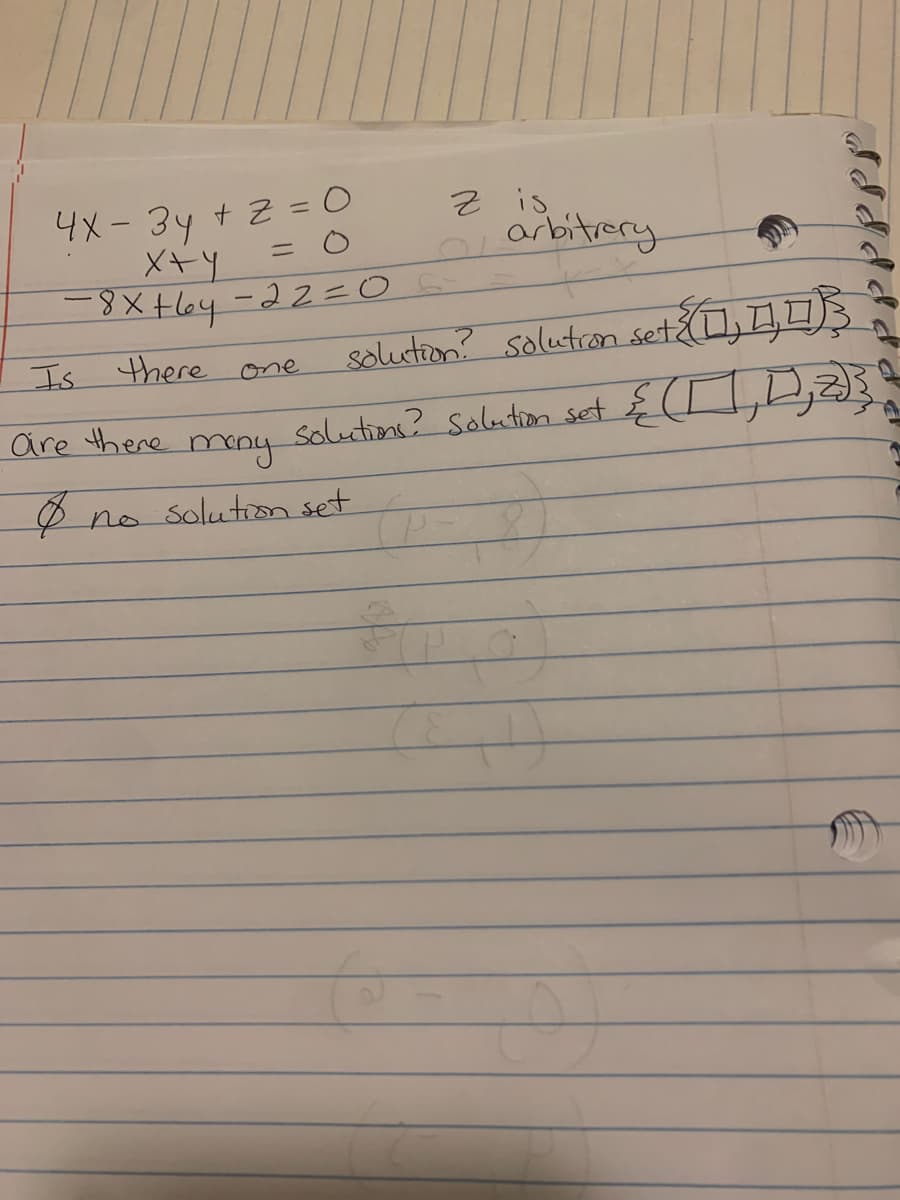 4x - 3y + z = 0 z is
x+y = 0 arbitrary
-8x+6y-2z=0
Is there one solution? solution set {(□,□,□)}
are there many solutions? solution set {(□,□,z)}
∅ no solution set